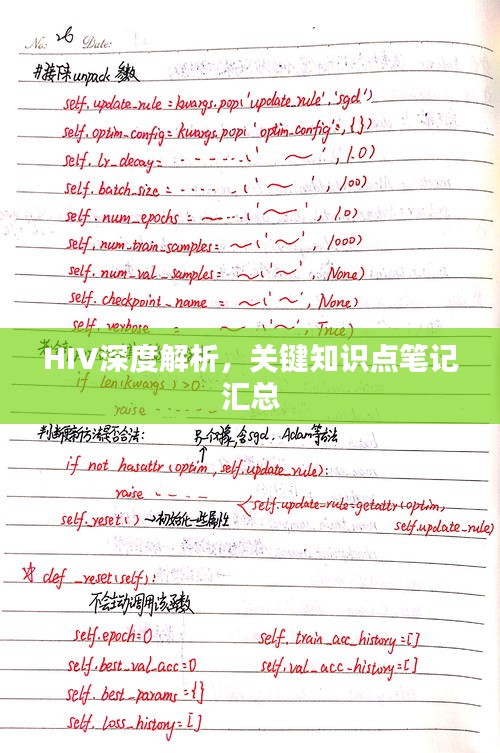 No: 26 Date:
#接下来unpack 参数
self.update_rule = kwargs.pop('update_rule', 'sgd')
self.optim_config = kwargs.pop('optim_config', {})
self.lr_decay = ------('~', 1.0)
self.batch_size = ------('~', 100)
self.num_epochs = ~----('~', 10)
self.num_train_samples = ~('~', 1000)
self.num_val_samples = ~('~', None)
self.checkpoint_name = ~('~', None)
self.verbose = ~('~', True)
HIV深度解析，关键知识点笔记
汇总
if len(kwargs) > 0:
raise ----
判断更新方法是否合法:
另一个模块,含sgd, Adam等方法
if not hasattr(optim, self.update_rule):
raise ----
self.update-rule=getattr(optim,
self.update_rule)
self._reset() → 初始化一些属性
☆ def _reset(self):
不会主动调用该函数
self.epoch=0 self.train_acc_history=[]
self.best_val_acc=0 self.val_acc_history=[]
self.best_params={}
self.loss_history=[]